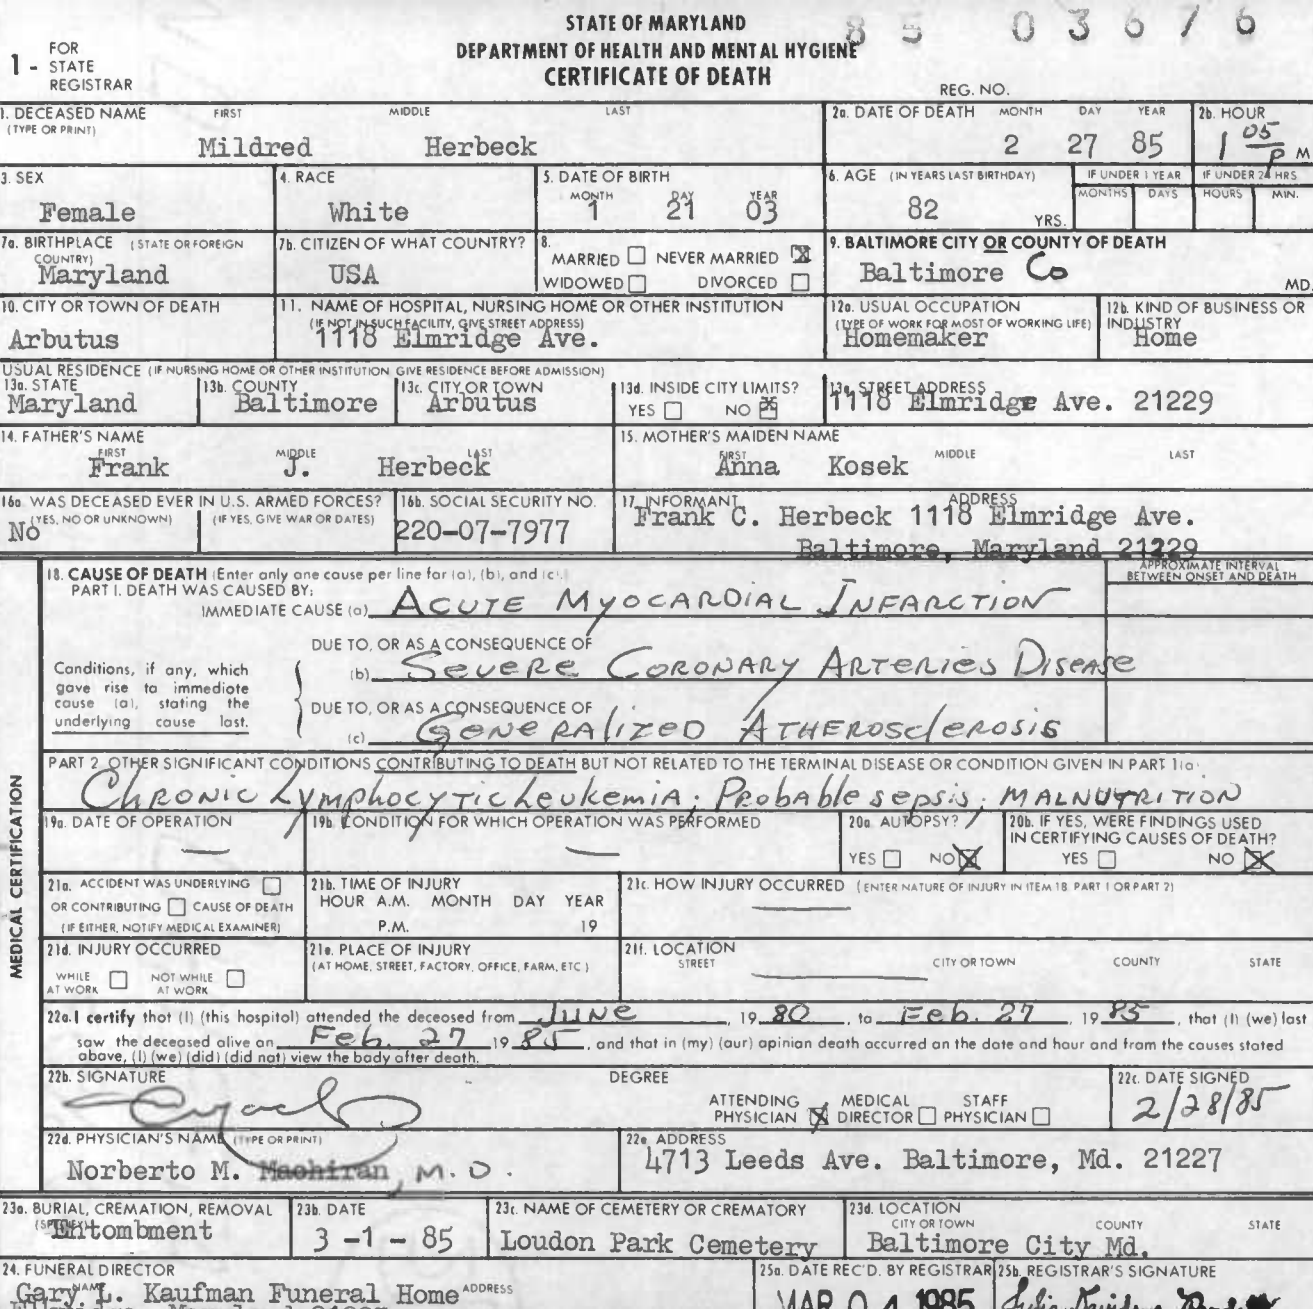 STATE OF MARYLAND
DEPARTMENT OF HEALTH AND MENTAL HYGIENE
CERTIFICATE OF DEATH
85 03676
1 - FOR STATE REGISTRAR
REG. NO.
1. DECEASED NAME (TYPE OR PRINT) FIRST MIDDLE LAST
Mildred Herbeck
2a. DATE OF DEATH MONTH DAY YEAR
2 27 85
2b. HOUR
1 05 P M
3. SEX
Female
4. RACE
White
5. DATE OF BIRTH MONTH DAY YEAR
1 21 03
6. AGE (IN YEARS LAST BIRTHDAY)
82 YRS.
IF UNDER 1 YEAR MONTHS DAYS
IF UNDER 24 HRS HOURS MIN.
7a. BIRTHPLACE (STATE OR FOREIGN COUNTRY)
Maryland
7b. CITIZEN OF WHAT COUNTRY?
USA
8. MARRIED NEVER MARRIED X
WIDOWED DIVORCED
9. BALTIMORE CITY OR COUNTY OF DEATH
Baltimore Co MD.
10. CITY OR TOWN OF DEATH
Arbutus
11. NAME OF HOSPITAL, NURSING HOME OR OTHER INSTITUTION
(IF NOT IN SUCH FACILITY, GIVE STREET ADDRESS)
1118 Elmridge Ave.
12a. USUAL OCCUPATION
(TYPE OF WORK FOR MOST OF WORKING LIFE)
Homemaker
12b. KIND OF BUSINESS OR INDUSTRY
Home
USUAL RESIDENCE (IF NURSING HOME OR OTHER INSTITUTION GIVE RESIDENCE BEFORE ADMISSION)
13a. STATE
Maryland
13b. COUNTY
Baltimore
13c. CITY OR TOWN
Arbutus
13d. INSIDE CITY LIMITS?
YES NO X
13e. STREET ADDRESS
1118 Elmridge Ave. 21229
14. FATHER'S NAME
FIRST MIDDLE LAST
Frank J. Herbeck
15. MOTHER'S MAIDEN NAME
FIRST MIDDLE LAST
Anna Kosek
16a. WAS DECEASED EVER IN U.S. ARMED FORCES?
(YES, NO OR UNKNOWN) (IF YES, GIVE WAR OR DATES)
No
16b. SOCIAL SECURITY NO.
220-07-7977
17. INFORMANT ADDRESS
Frank C. Herbeck 1118 Elmridge Ave.
Baltimore, Maryland 21229
MEDICAL CERTIFICATION
18. CAUSE OF DEATH (Enter only one cause per line for (a), (b), and (c).)
PART I. DEATH WAS CAUSED BY:
APPROXIMATE INTERVAL BETWEEN ONSET AND DEATH
IMMEDIATE CAUSE (a) ACUTE MYOCARDIAL INFARCTION
DUE TO, OR AS A CONSEQUENCE OF
(b) SEVERE CORONARY ARTERIES DISEASE
Conditions, if any, which gave rise to immediate cause (a), stating the underlying cause last.
DUE TO, OR AS A CONSEQUENCE OF
(c) GENERALIZED ATHEROSCLEROSIS
PART 2. OTHER SIGNIFICANT CONDITIONS CONTRIBUTING TO DEATH BUT NOT RELATED TO THE TERMINAL DISEASE OR CONDITION GIVEN IN PART 1(a)
CHRONIC Lymphocytic Leukemia; Probable sepsis; MALNUTRITION
19a. DATE OF OPERATION
—
19b. CONDITION FOR WHICH OPERATION WAS PERFORMED
—
20a. AUTOPSY?
YES NO X
20b. IF YES, WERE FINDINGS USED IN CERTIFYING CAUSES OF DEATH?
YES NO X
21a. ACCIDENT WAS UNDERLYING
OR CONTRIBUTING CAUSE OF DEATH
(IF EITHER, NOTIFY MEDICAL EXAMINER)
21b. TIME OF INJURY
HOUR A.M. MONTH DAY YEAR
P.M. 19
21c. HOW INJURY OCCURRED (ENTER NATURE OF INJURY IN ITEM 18 PART 1 OR PART 2)
—
21d. INJURY OCCURRED
WHILE AT WORK NOT WHILE AT WORK
21e. PLACE OF INJURY
(AT HOME, STREET, FACTORY, OFFICE, FARM, ETC.)
21f. LOCATION
STREET CITY OR TOWN COUNTY STATE
—
22a. I certify that (I) (this hospital) attended the deceased from JUNE, 19 80, to Feb. 27, 19 85, that (I) (we) last
saw the deceased alive on Feb. 27 19 85, and that in (my) (our) opinion death occurred on the date and hour and from the causes stated
above, (I) (we) (did) (did not) view the body after death.
22b. SIGNATURE
DEGREE
ATTENDING PHYSICIAN X MEDICAL DIRECTOR STAFF PHYSICIAN
22c. DATE SIGNED
2/28/85
22d. PHYSICIAN'S NAME (TYPE OR PRINT)
Norberto M. Machiran, M.D.
22e. ADDRESS
4713 Leeds Ave. Baltimore, Md. 21227
23a. BURIAL, CREMATION, REMOVAL (SPECIFY)
Entombment
23b. DATE
3 -1 - 85
23c. NAME OF CEMETERY OR CREMATORY
Loudon Park Cemetery
23d. LOCATION
CITY OR TOWN COUNTY STATE
Baltimore City Md.
24. FUNERAL DIRECTOR
NAME ADDRESS
Gary L. Kaufman Funeral Home
25a. DATE REC'D. BY REGISTRAR
MAR 04 1985
25b. REGISTRAR'S SIGNATURE